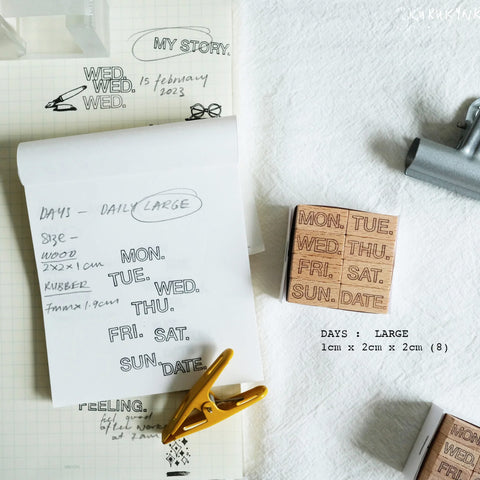 MY STORY.
WED.
WED.
WED.
15 february
2023
DAYS - DAILY LARGE
SIZE -
WOOD
2x2x1cm
RUBBER
7mm x 1.9cm
MON.
TUE.
WED.
THU.
FRI. SAT.
SUN. DATE.
FEELING.
feel good
after work
at 7am
MON. TUE.
WED. THU.
FRI. SAT.
SUN. DATE.
DAYS : LARGE
1cm x 2cm x 2cm (8)
MON.
WED.
FRI.